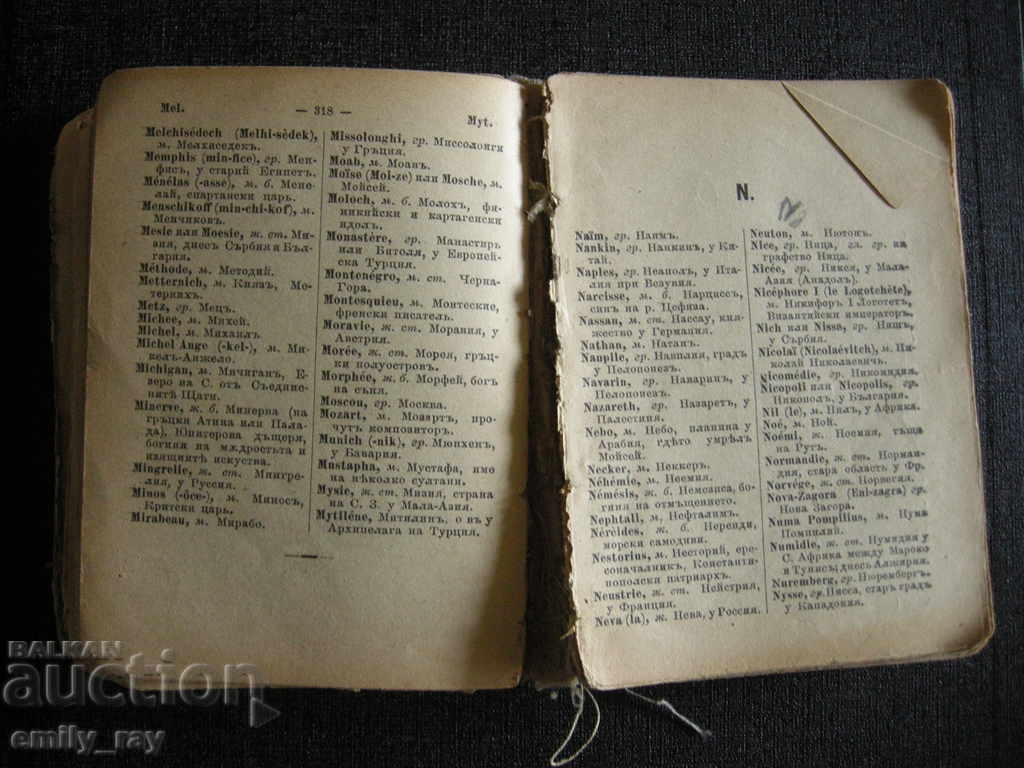 Mel.
— 318 —
Myt.
Melchisédech (Melhi-sèdek),
м. Мелхиседекъ.
Memphis (min-fice), гр. Мен-
фисъ, у старий Египетъ.
Ménélas (-asse), м. б. Мене-
лай, спартански царь.
Menschikoff (min-chi-kof), м.
Менчиковъ.
Mesie или Moesie, ж. ст. Ми-
зия, днесъ Сърбия и Бъл-
гария.
Méthode, м. Методий.
Metternich, м. Князъ, Ме-
тернихъ.
Metz, гр. Мецъ.
Michée, м. Михей.
Michel, м. Михаилъ.
Michel Ange (-kel-), м. Ми-
келъ-Анжело.
Michigan, м. Мичиганъ, Е-
зеро на С. отъ Съедине-
нитѣ Щати.
Minerve, ж. б. Минерва (на
гръцки Атина или Пала-
да), Юпитерова дъщеря,
богиня на мѫдростьта и
изящнитѣ искуства.
Mingrelie, ж. ст. Мингре-
лия, у Руссия.
Minos (-ôce-), м. Миносъ,
Критски царь.
Mirabeau, м. Мирабо.
Missolonghi, гр. Миссолонги
у Гръция.
Moab, м. Моавъ.
Moïse (Moi-ze) или Mosche, м.
Мойсей.
Moloch, м. б. Молохъ, фи-
никийски и картагенски
идолъ.
Monastère, гр. Манастиръ
или Битоля, у Европей-
ска Турция.
Montenégro, м. ст. Черна-
Гора.
Montesquieu, м. Монтеские,
френски писателъ.
Moravie, ж. ст. Моравия, у
Австрия.
Morée, ж. ст. Морея, гръц-
ки полуостровъ.
Morphée, ж. б. Морфей, богъ
на съня.
Moscou, гр. Москва.
Mozart, м. Моцартъ, про-
чутъ композиторъ.
Munich (-nik), гр. Мюнхенъ,
у Бавария.
Mustapha, м. Мустафа, име
на нѣколко султани.
Mysie, ж. ст. Мизия, страна
на С. З. у Мала-Азия.
Mytilène, Митилинъ, о въ у
Архипелага на Турция.
N.
Naïm, гр. Наимъ.
Nankin, гр. Нанкинъ, у Ки-
тай.
Naples, гр. Неаполъ, у Ита
лия при Везувия.
Narcisse, м. б. Нарциссъ,
синъ на р. Цефиза.
Nassau, м. ст. Нассау, кня-
жество у Германия.
Nathan, м. Натанъ.
Nauplie, гр. Навплия, градъ
у Пелопонезъ.
Navarin, гр. Наваринъ, у
Пелопонезъ.
Nazareth, гр. Назаретъ, у
Палестиня.
Nebo, м. Небо, планина у
Арабия, гдѣто умрѣлъ
Мойсей.
Necker, м. Неккеръ.
Néhémie, м. Неемия.
Némésis, ж. б. Немезиса, бо-
гиня на отмъщението.
Nephtali, м. Нефталимъ.
Néréides, ж. б. Нереиди,
морски самодиви.
Nestorius, м. Несторий, ере-
соначалникъ, Константи-
пополски патриархъ.
Neustrie, ж. ст. Нейстрия,
у Франция.
Neva (la), ж. Нева, у Россия.
Neuton, м. Нютонъ.
Nice, гр. Ница, гл. гр. на
графство Ница.
Nicée, гр. Никея, у Мала-
Азия (Анадолъ).
Nicéphore I (le Logotchète),
м. Никифоръ I Логотетъ,
Византийски императоръ.
Nich или Nissa, гр. Нишъ,
у Сърбия.
Nicolaï (Nicolaévitch), м. Ни-
колай Николаевичъ.
Nicomédie, гр. Никомидия.
Nicopoli или Nicopolis, гр.
Никополъ, у България.
Nil (le), м. Нилъ, у Африка.
Noé, м. Ной.
Noémi, ж. Ноемия, тъща
на Рутъ.
Normandie, ж. ст. Норман-
дия, стара область у Фр.
Norvége, ж. ст. Норвегия.
Nova-Zagora (Eni-zagra) гр.
Нова Загора.
Numa Pompilius, м. Нума
Помпилий.
Numidie, ж. ст. Нумидия у
С. Африка между Мароко
и Тунисъ; днесъ Алжирия.
Nuremberg, гр. Нюрембергъ.
Nysse, гр. Нисса, старъ градъ
у Кападокия.
BALKAN
auction
emily_ray